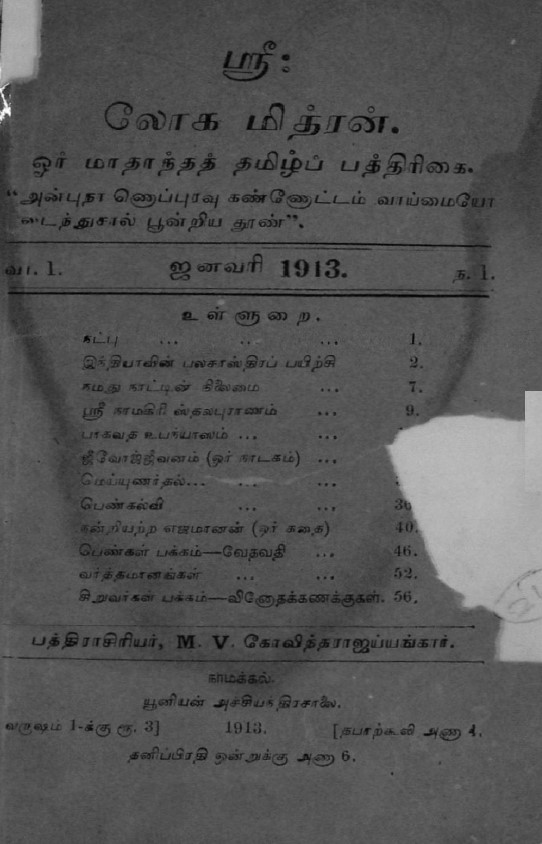 ஸ்ரீ:
லோக மித்ரன்.
ஓர் மாதாந்தத் தமிழ்ப் பத்திரிகை.
"அன்புநா ணொப்புரவு கண்ணோட்டம் வாய்மையோ
டைந்துசால் பூன்றிய தூண்".
வா. 1. ஜனவரி 1913. ந. 1.
உள்ளுறை.
நட்பு ... ... ... 1.
இந்தியாவின் பலசாஸ்திரப் பயிற்சி 2.
நமது நாட்டின் நிலைமை ... 7.
ஸ்ரீ நாமகிரி ஸ்தலபுராணம் ... 9.
பாகவத உபந்யாஸம் ... ...
ஜீவோஜ்ஜீவனம் (ஓர் நாடகம்) ...
மெய்யுணர்தல்... ... ...
பெண்கல்வி ... ... 36
நன்றியற்ற எஜமானன் (ஓர் கதை) 40.
பெண்கள் பக்கம்—வேதவதி ... 46.
வர்த்தமானங்கள் ... ... 52.
சிறுவர்கள் பக்கம்—வினோதக்கணக்குகள். 56.
பத்திராசிரியர், M. V. கோவிந்தராஜய்யங்கார்.
நாமக்கல்.
யூனியன் அச்சியந்திரசாலை.
வருஷம் 1-க்கு ரூ. 3] 1913. [தபாற்கூலி அணா 4.
தனிப்பிரதி ஒன்றுக்கு அணா 6.